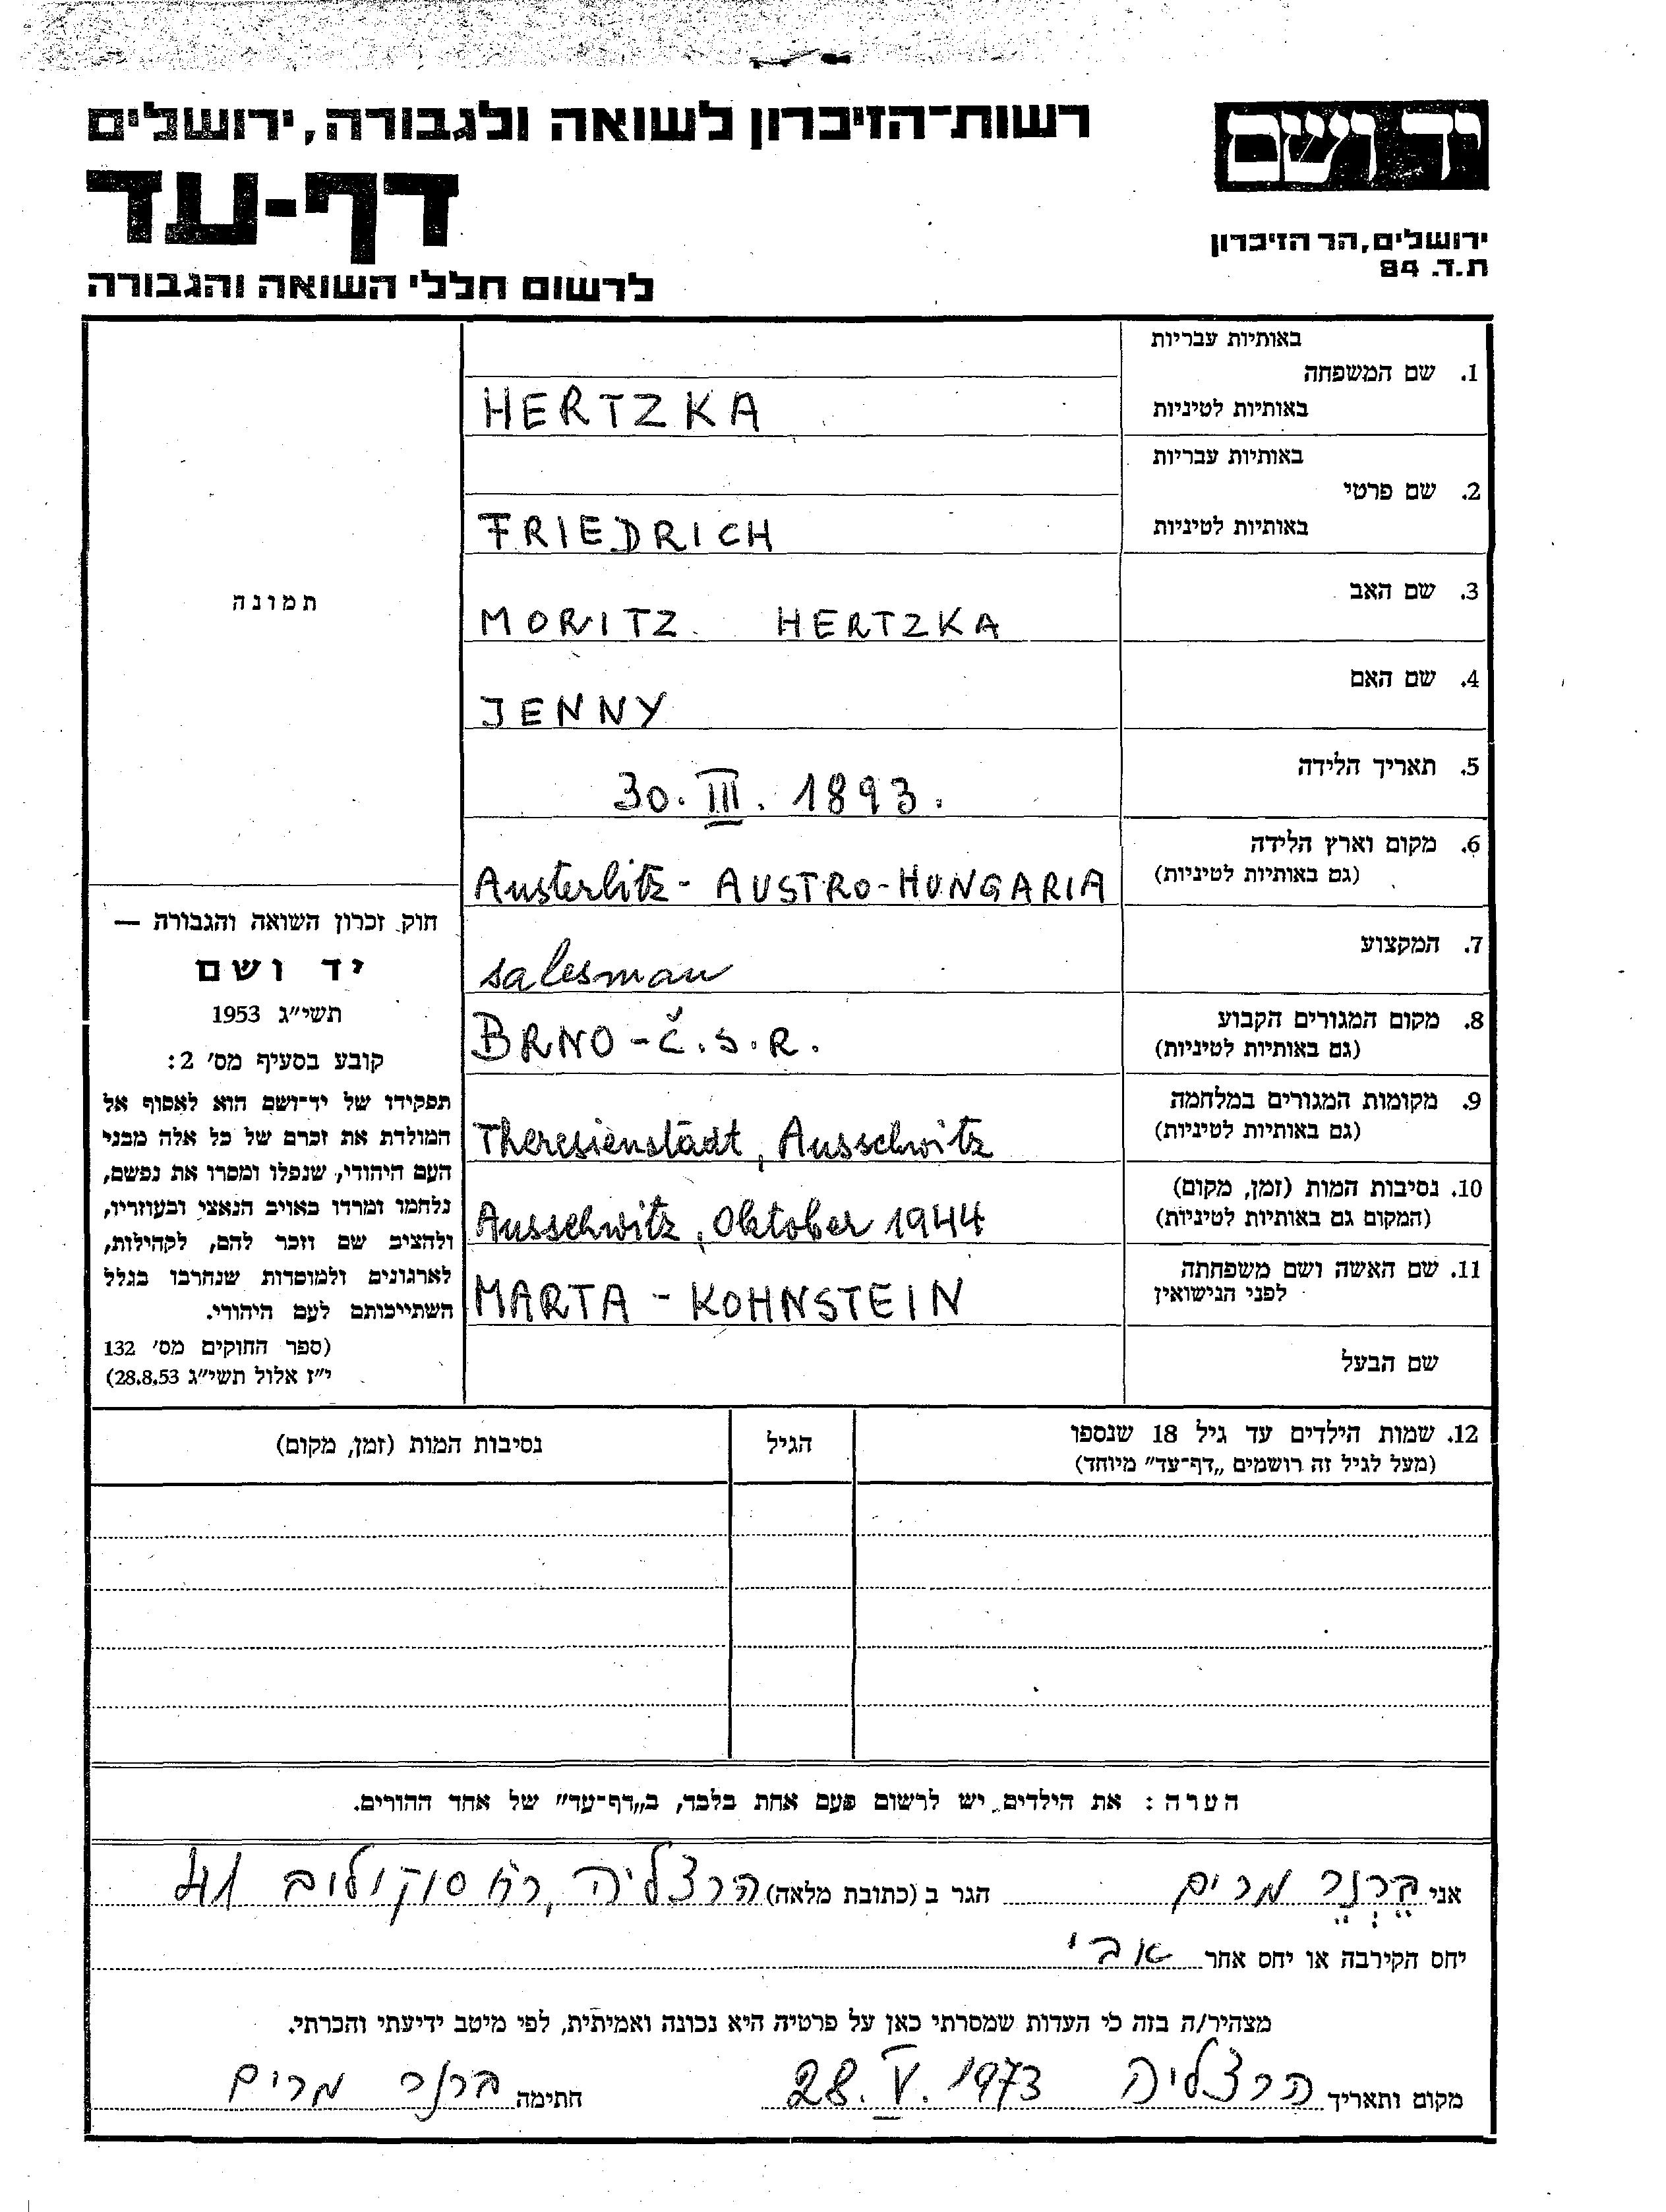 רשות־הזיכרון לשואה ולגבורה, ירושלים
דף-עד
לרשום חללי השואה והגבורה
יד ושם
ירושלים, הר הזיכרון
ת.ד. 84
באותיות עבריות
1. שם המשפחה
באותיות לטיניות
HERTZKA
באותיות עבריות
2. שם פרטי
באותיות לטיניות
FRIEDRICH
3. שם האב
MORITZ HERTZKA
4. שם האם
JENNY
5. תאריך הלידה
30. III. 1893.
6. מקום וארץ הלידה
(גם באותיות לטיניות)
Austerlitz - AUSTRO-HUNGARIA
7. המקצוע
salesman
8. מקום המגורים הקבוע
(גם באותיות לטיניות)
BRNO - Č.S.R.
9. מקומות המגורים במלחמה
(גם באותיות לטיניות)
Theresienstadt, Ausschwitz
10. נסיבות המות (זמן, מקום)
(המקום גם באותיות לטיניות)
Ausschwitz, Oktober 1944
11. שם האשה ושם משפחתה
לפני הנישואין
MARTA - KOHNSTEIN
שם הבעל
תמונה
חוק זכרון השואה והגבורה —
יד ושם
תשי״ג 1953
קובע בסעיף מס׳ 2:
תפקידו של יד־ושם הוא לאסוף אל
המולדת את זכרם של כל אלה מבני
העם היהודי, שנפלו ומסרו את נפשם,
נלחמו ומרדו באויב הנאצי ובעוזריו,
ולהציב שם וזכר להם, לקהילות,
לארגונים ולמוסדות שנחרבו בגלל
השתייכותם לעם היהודי.
(ספר החוקים מס׳ 132
י״ז אלול תשי״ג 28.8.53)
12. שמות הילדים עד גיל 18 שנספו
(מעל לגיל זה רושמים „דף־עד״ מיוחד)
הגיל
נסיבות המות (זמן, מקום)
הערה: את הילדים יש לרשום פעם אחת בלבד, ב„דף־עד״ של אחד ההורים.
אני בֶּרְנֶר מרים הגר ב (כתובת מלאה) הרצליה, רח סוקולוב 41
יחס הקירבה או יחס אחר אבי
מצהיר/ה בזה כי העדות שמסרתי כאן על פרטיה היא נכונה ואמיתית, לפי מיטב ידיעתי והכרתי.
מקום ותאריך הרצליה 28. V. 1973 חתימה ברנר מרים